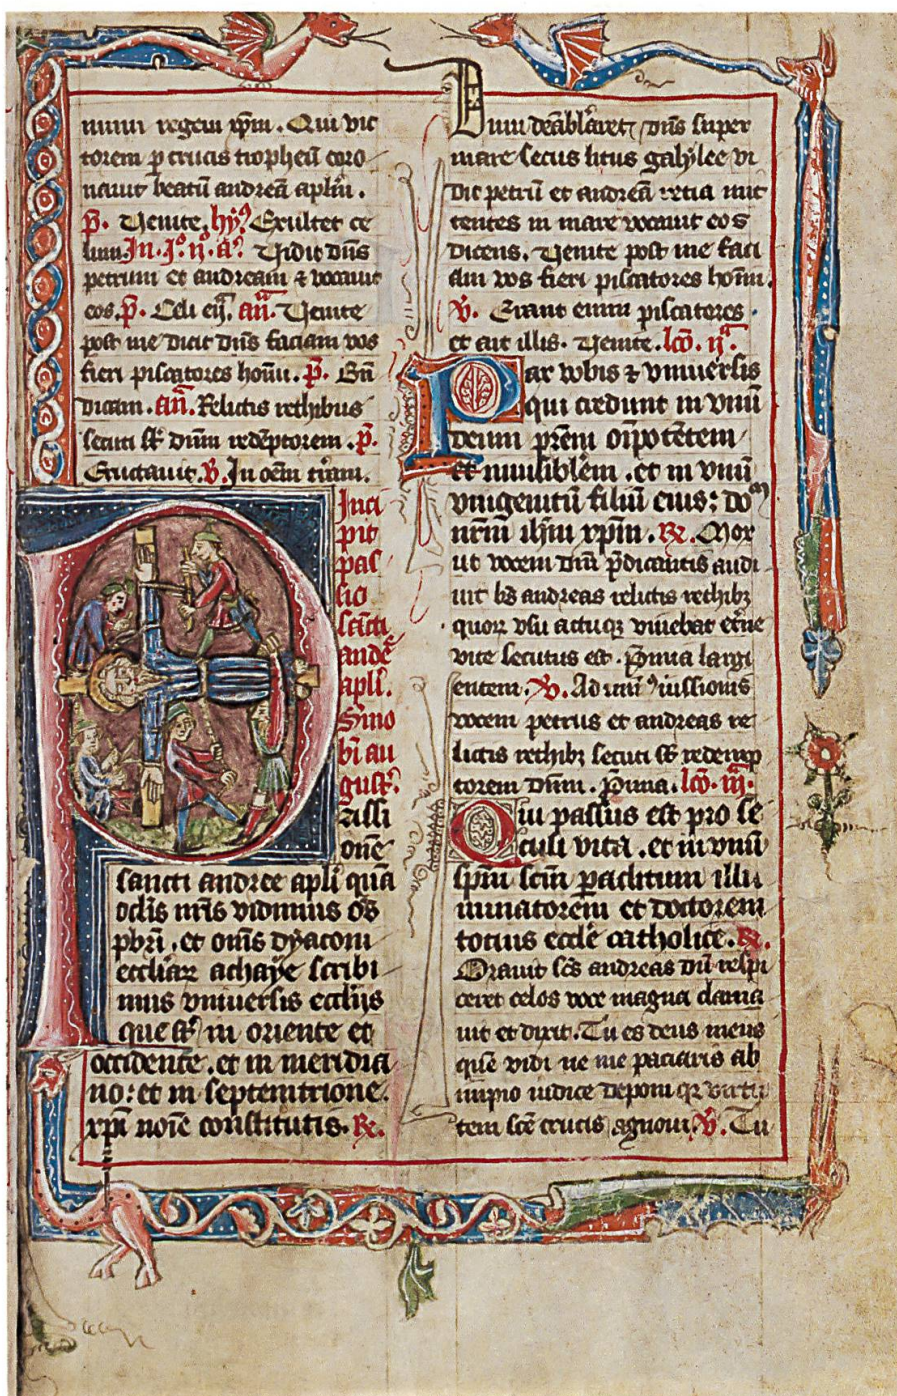 mum regem xp̄m. Qui vic
torem p crucis tropheū coro
nauit beatū andreā aplm̄.
p̄. Venite. hy᷒. Exultet ce
lum. In. j°. n̄°. a᷒. Vidit dn̄s
petrum et andream ⁊ vocauit
eos. p̄. Celi eņ. an̄. Venite
post me dicit dn̄s faciam vos
fieri piscatores hom̄. p̄. Bn̄
dicam. an̄. Relictis rethibus
secuti st̄ dn̄m redēptorem. p̄.
Eructauit. v. In oēm t'ram.
Inci
pit
pas
sio
sc̄ti
andr̄e
apl̄i.
S'mo
b̄i au
gust'.
Passi
onē
sancti andree apl̄i quā
oclīs nr̄īs vidimus oēs
pbr̄i. et om̄s dyaconi
eccl̄iaꝝ achaye scribi
mus vniuersis eccl̄ijs
que st̄ in oriente et
occidente. et in meridia
no: et in septemtrione
xp̄i noīe constitutis. R̄.
Dum deāblaret dn̄s super
mare secus litus galylee vi
dit petrū et andreā retia mit
tentes in mare vocauit eos
dicens. Venite post me faci
am vos fieri piscatores hom̄.
v. Erant enim piscatores.
et ait illis. Venite. lc̄o. ij.
Pax vobis ⁊ vniuersis
qui credunt in vnū
deum pr̄em om̄ipotētem
et inuisiblēm. et in vnū
vnigenitū filiū eius: do
nr̄m ih̄m xp̄m. R̄. Mox
ut vocem dn̄i p̄dicantis audi
uit b̄s andreas relictis rethibꝫ
quoꝝ vsu actuqꝫ viuebat et'ne
vite secutus est. p̄mia largi
entem. v. Ad vni᷒ iussionis
vocem petrus et andreas re
lictis rethibꝫ secuti st̄ redemp
torem dn̄m. p̄mia. lc̄o. iij.
Qui passus est pro se
culi vita. et in vnū
sp̄m sc̄m paclitum illu
minatorem et doctorem
totius eccl̄e catholice. R̄.
Orauit sc̄s andreas dū respi
ceret celos voce magna clama
uit et dixit. Tu es deus meus
quē vidi ne me paciaris ab
impio iudice deponi qꝛ virtu
tem sc̄e crucis agnoui. v. Tu